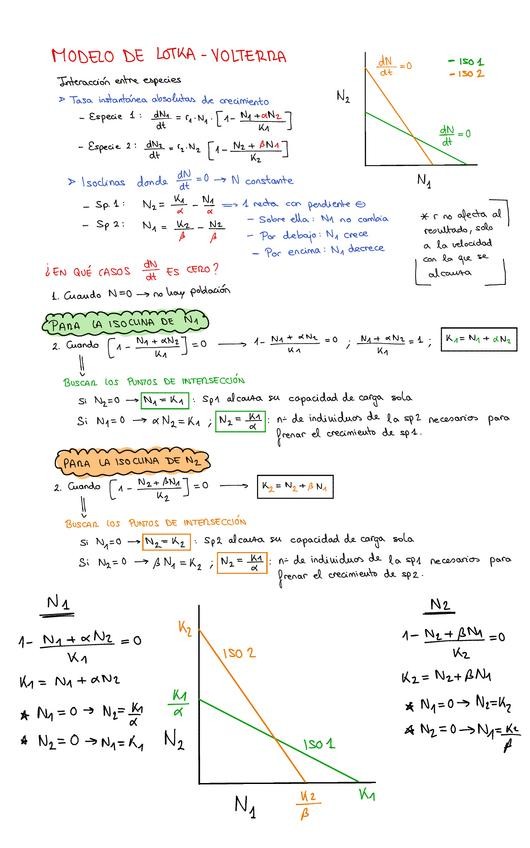 MODELO DE LOTKA - VOLTERRA
Interacción entre especies
➢ Tasa instantánea absolutas de crecimiento
- Especie 1: dN1/dt = r1 · N1 · [1 - (N1 + αN2)/K1]
- Especie 2: dN2/dt = r2 · N2 [1 - (N2 + βN1)/K2]
➢ Isoclinas donde dN/dt = 0 → N constante
- Sp. 1: N2 = K1/α - N1/α ⟹ 1 recta con pendiente ⊖
- Sp 2: N1 = K2/β - N2/β
- Sobre ella: N1 no cambia
- Por debajo: N1 crece
- Por encima: N1 decrece
dN/dt = 0
- ISO 1
- ISO 2
N2
dN/dt = 0
N1
* r no afecta al
resultado, solo
a la velocidad
con la que se
alcanza
¿EN QUÉ CASOS dN/dt ES CERO?
1. Cuando N=0 → no hay población
PARA LA ISOCLINA DE N1
2. Cuando [1 - (N1 + αN2)/K1] = 0 → 1 - (N1 + αN2)/K1 = 0 ; (N1 + αN2)/K1 = 1 ; K1 = N1 + αN2
BUSCAR LOS PUNTOS DE INTERSECCIÓN
Si N2=0 → N1 = K1 : Sp1 alcanza su capacidad de carga sola
Si N1=0 → αN2 = K1 ; N2 = K1/α : nº de individuos de la sp2 necesarios para
frenar el crecimiento de sp1.
PARA LA ISOCLINA DE N2
2. Cuando [1 - (N2 + βN1)/K2] = 0 → K2 = N2 + βN1
BUSCAR LOS PUNTOS DE INTERSECCIÓN
Si N1=0 → N2 = K2 : Sp2 alcanza su capacidad de carga sola
Si N2=0 → βN1 = K2 ; N2 = K1/α : nº de individuos de la sp1 necesarios para
frenar el crecimiento de sp2.
N1
1 - (N1 + αN2)/K1 = 0
K1 = N1 + αN2
* N1 = 0 → N2 = K1/α
* N2 = 0 → N1 = K1
K2
ISO 2
K1/α
N2
ISO 1
N1
K2/β
K1
N2
1 - (N2 + βN1)/K2 = 0
K2 = N2 + βN1
* N1 = 0 → N2 = K2
* N2 = 0 → N1 = K2/β